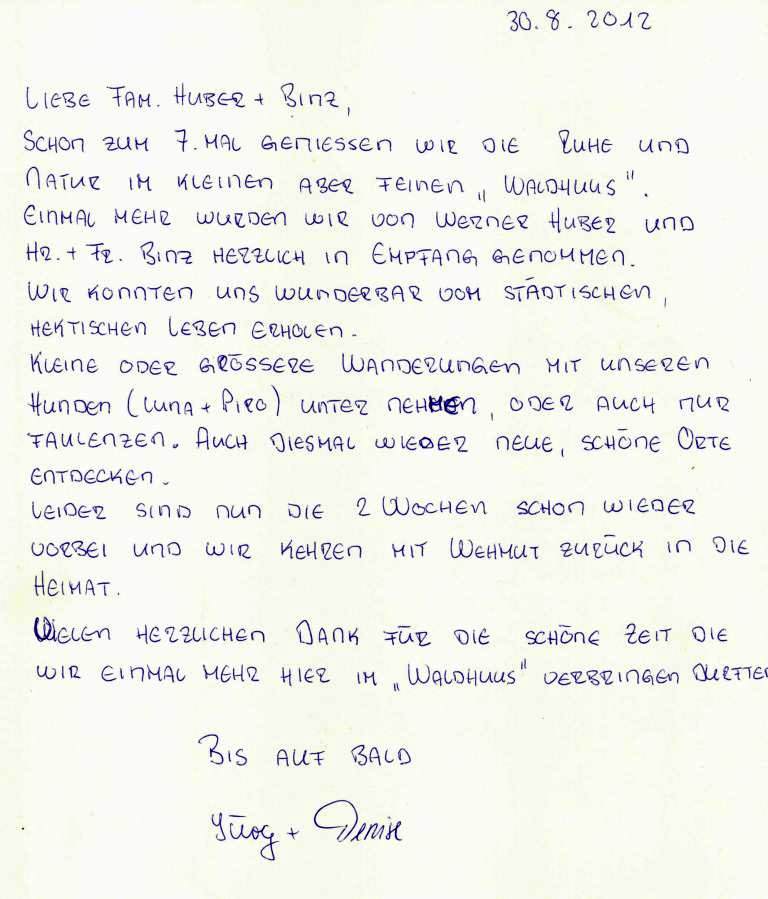 30.8.2012
LIEBE FAM. HUBER + BINZ,
SCHON ZUM 7. MAL GENIESSEN WIR DIE RUHE UND
NATUR IM KLEINEN ABER FEINEN „WALDHUUS".
EINMAL MEHR WURDEN WIR VON WERNER HUBER UND
HR. + FR. BINZ HERZLICH IN EMPFANG GENOMMEN.
WIR KONNTEN UNS WUNDERBAR VOM STÄDTISCHEN,
HEKTISCHEN LEBEN ERHOLEN.
KLEINE ODER GRÖSSERE WANDERUNGEN MIT UNSEREN
HUNDEN (LUNA + PIRO) UNTER NEHMEN, ODER AUCH NUR
FAULENZEN. AUCH DIESMAL WIEDER NEUE, SCHÖNE ORTE
ENTDECKEN.
LEIDER SIND NUN DIE 2 WOCHEN SCHON WIEDER
VORBEI UND WIR KEHREN MIT WEHMUT ZURÜCK IN DIE
HEIMAT.
VIELEN HERZLICHEN DANK FÜR DIE SCHÖNE ZEIT DIE
WIR EINMAL MEHR HIER IM „WALDHUUS" VERBRINGEN DURFTEN
BIS AUF BALD
Jürg + Denise